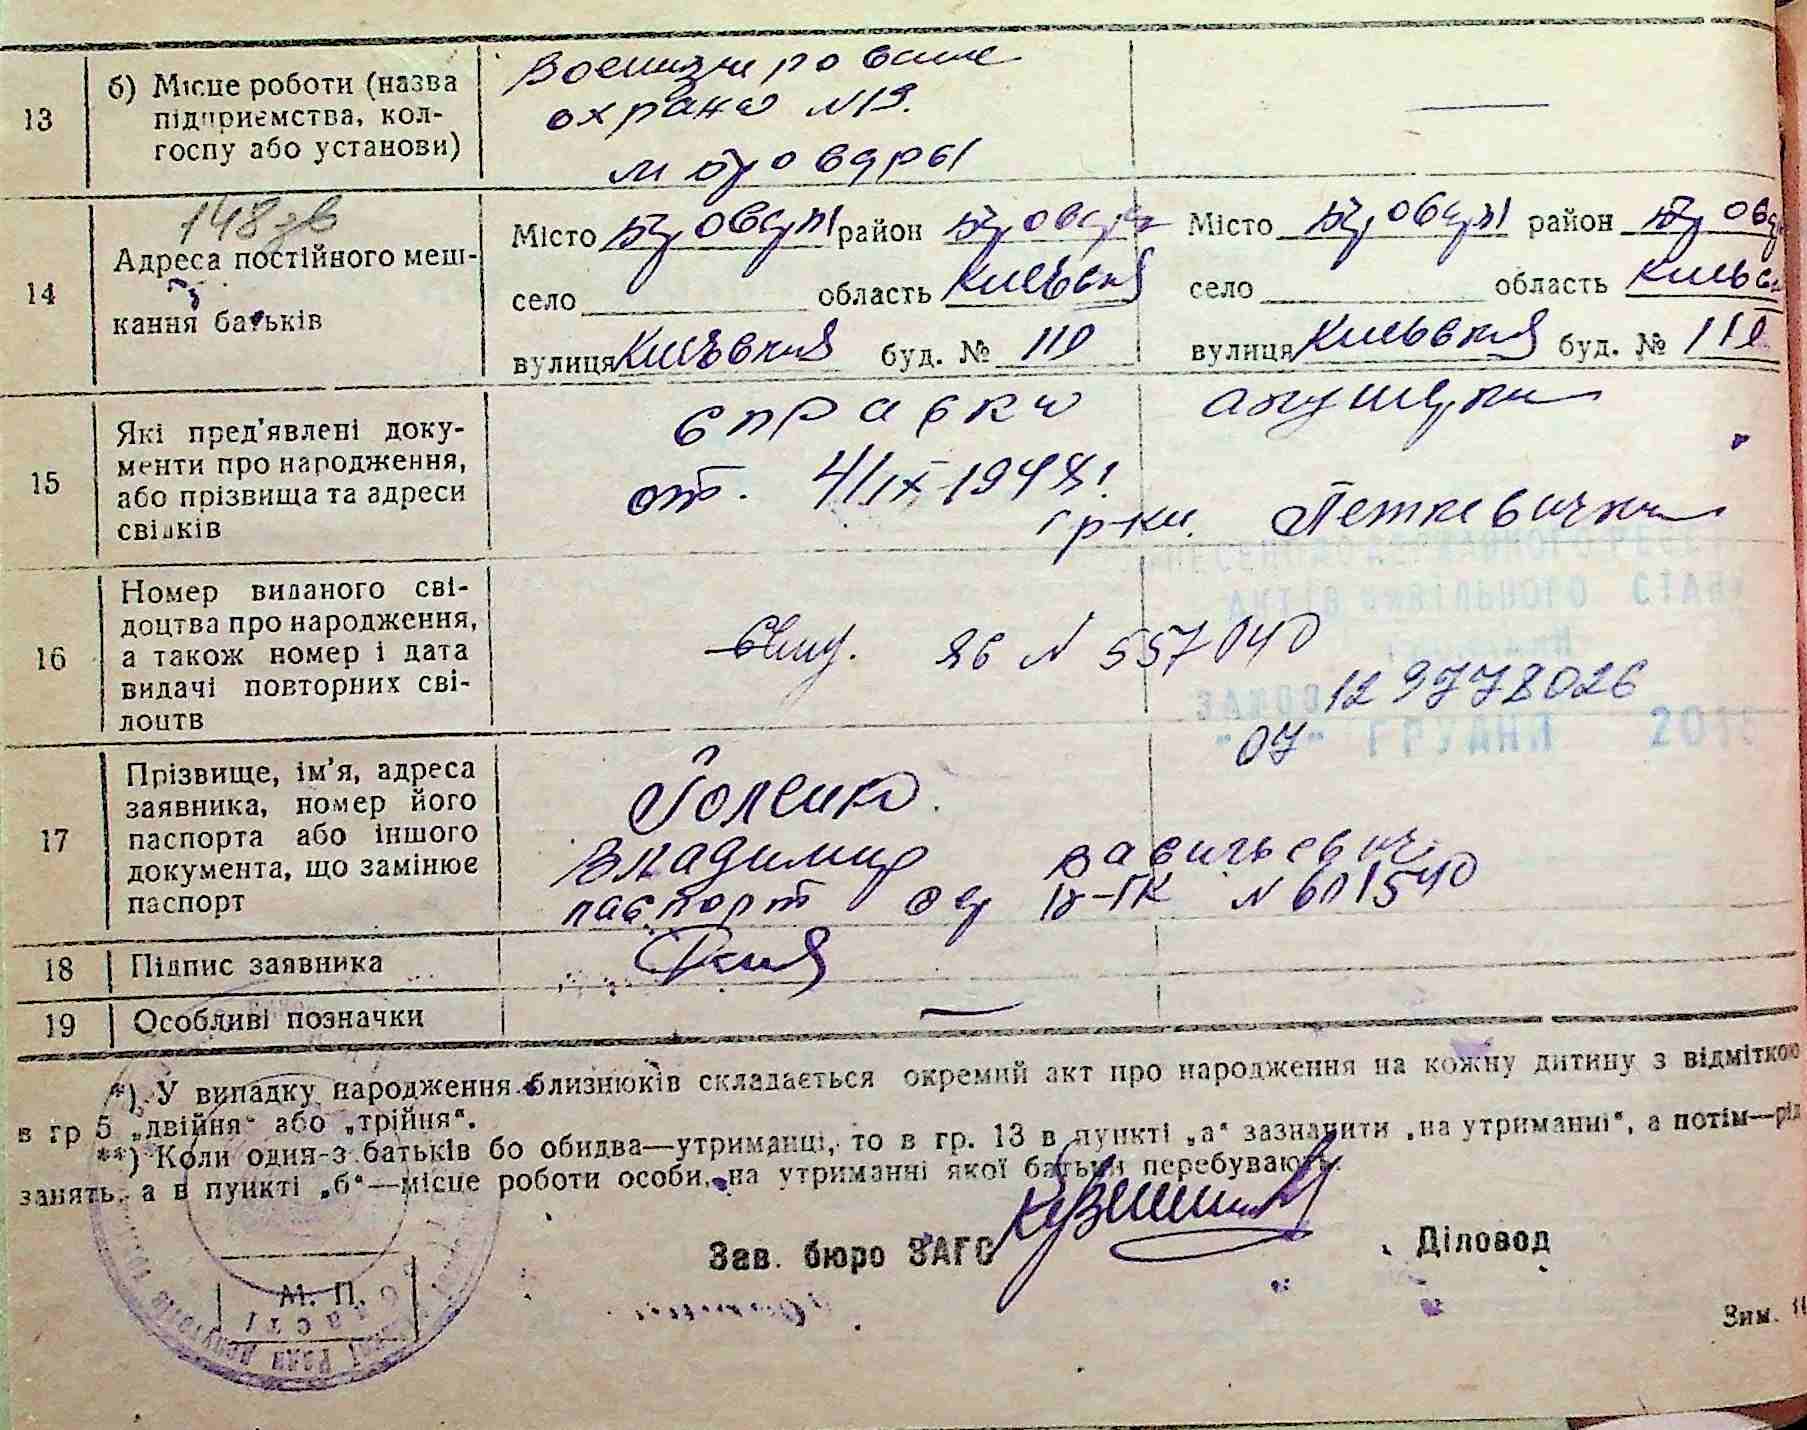 13
б) Місце роботи (назва
підприємства, кол-
госпу або установи)
охрана N 19.
148зв
14
Адреса постійного меш-
кання батьків
Місто район
село область Киевск
вулиця Киевская буд. № 119
Місто район
село область Киевск
вулиця Киевская буд. № 119
15
Які пред'явлені доку-
менти про народження,
або прізвища та адреси
свідків
справка акушерки
от. 4/IX-1947г.
гр-ки. Петкевичкин
16
Номер виданого сві-
доцтва про народження,
а також номер і дата
видачі повторних сві-
доцтв
N 557040
129778026
"07" ГРУДНЯ
17
Прізвище, ім'я, адреса
заявника, номер його
паспорта або іншого
документа, що замінює
паспорт
Голенко
Владимир Савельевич
паспорт N 601540
18
Підпис заявника
19
Особливі позначки
*) У випадку народження близнюків складається окремий акт про народження на кожну дитину з відміткою
в гр 5 „двійня“ або „трійня“.
**) Коли один з батьків бо обидва—утриманці, то в гр. 13 в пункті „а“ зазначити „на утриманні“, а потім—рід
занять, а в пункті „б“—місце роботи особи, на утриманні якої батьки перебувають.
Зав. бюро ЗАГС
Діловод
М. П.
Зим.